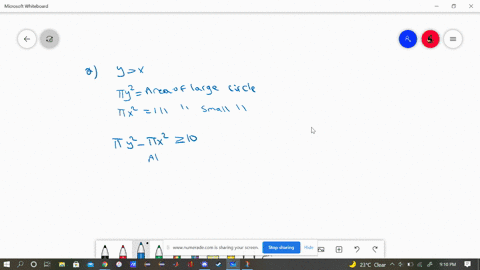 Microsoft Whiteboard
a) y>x
πy² = Area of large circle
πx² = 111 11 small 11
πy² - πx² ≥ 10
Al
www.numerade.com is sharing your screen. Stop sharing Hide
21°C Clear
9:10 PM